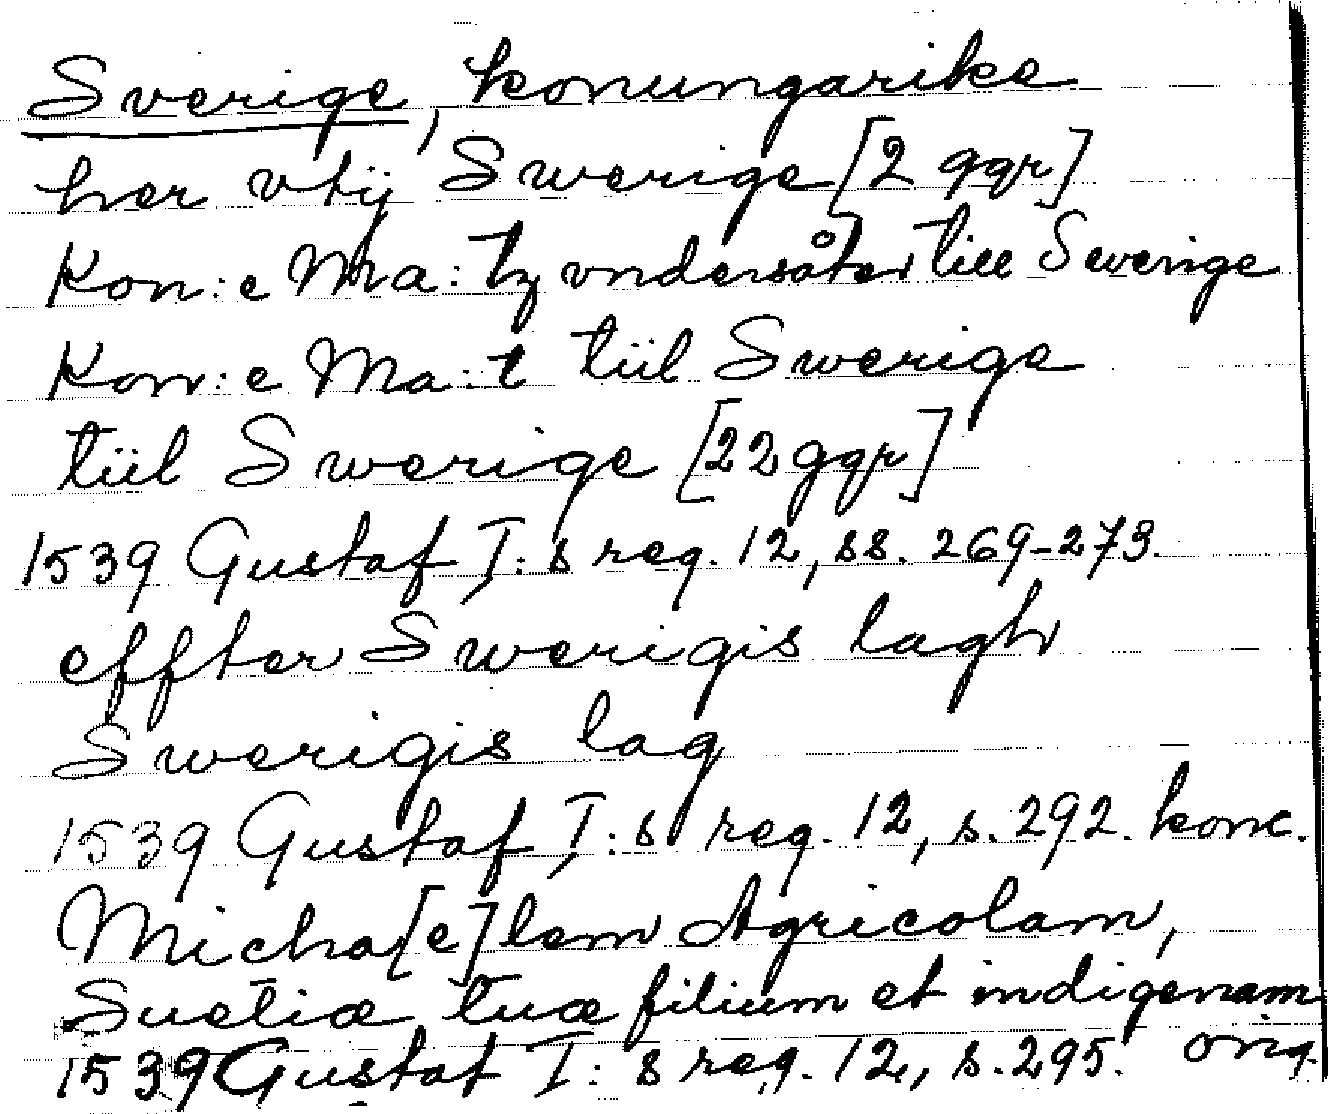 Sverige, konungarike
her vtij Swerige [2 ggr]
Kon:e Ma:tz vndersåter till Swerige
Kon:e Ma:t tiil Swerige
tiil Swerige [22 ggr]
1539 Gustaf I:s reg. 12, ss. 269-273.
effter Swerigis lagh
Swerigis lag
1539 Gustaf I:s reg. 12, s. 292. konc.
Micha[e]lem Agricolam,
Suetiæ tuæ filium et indigenam
1539 Gustaf I:s reg. 12, s. 295. orig.